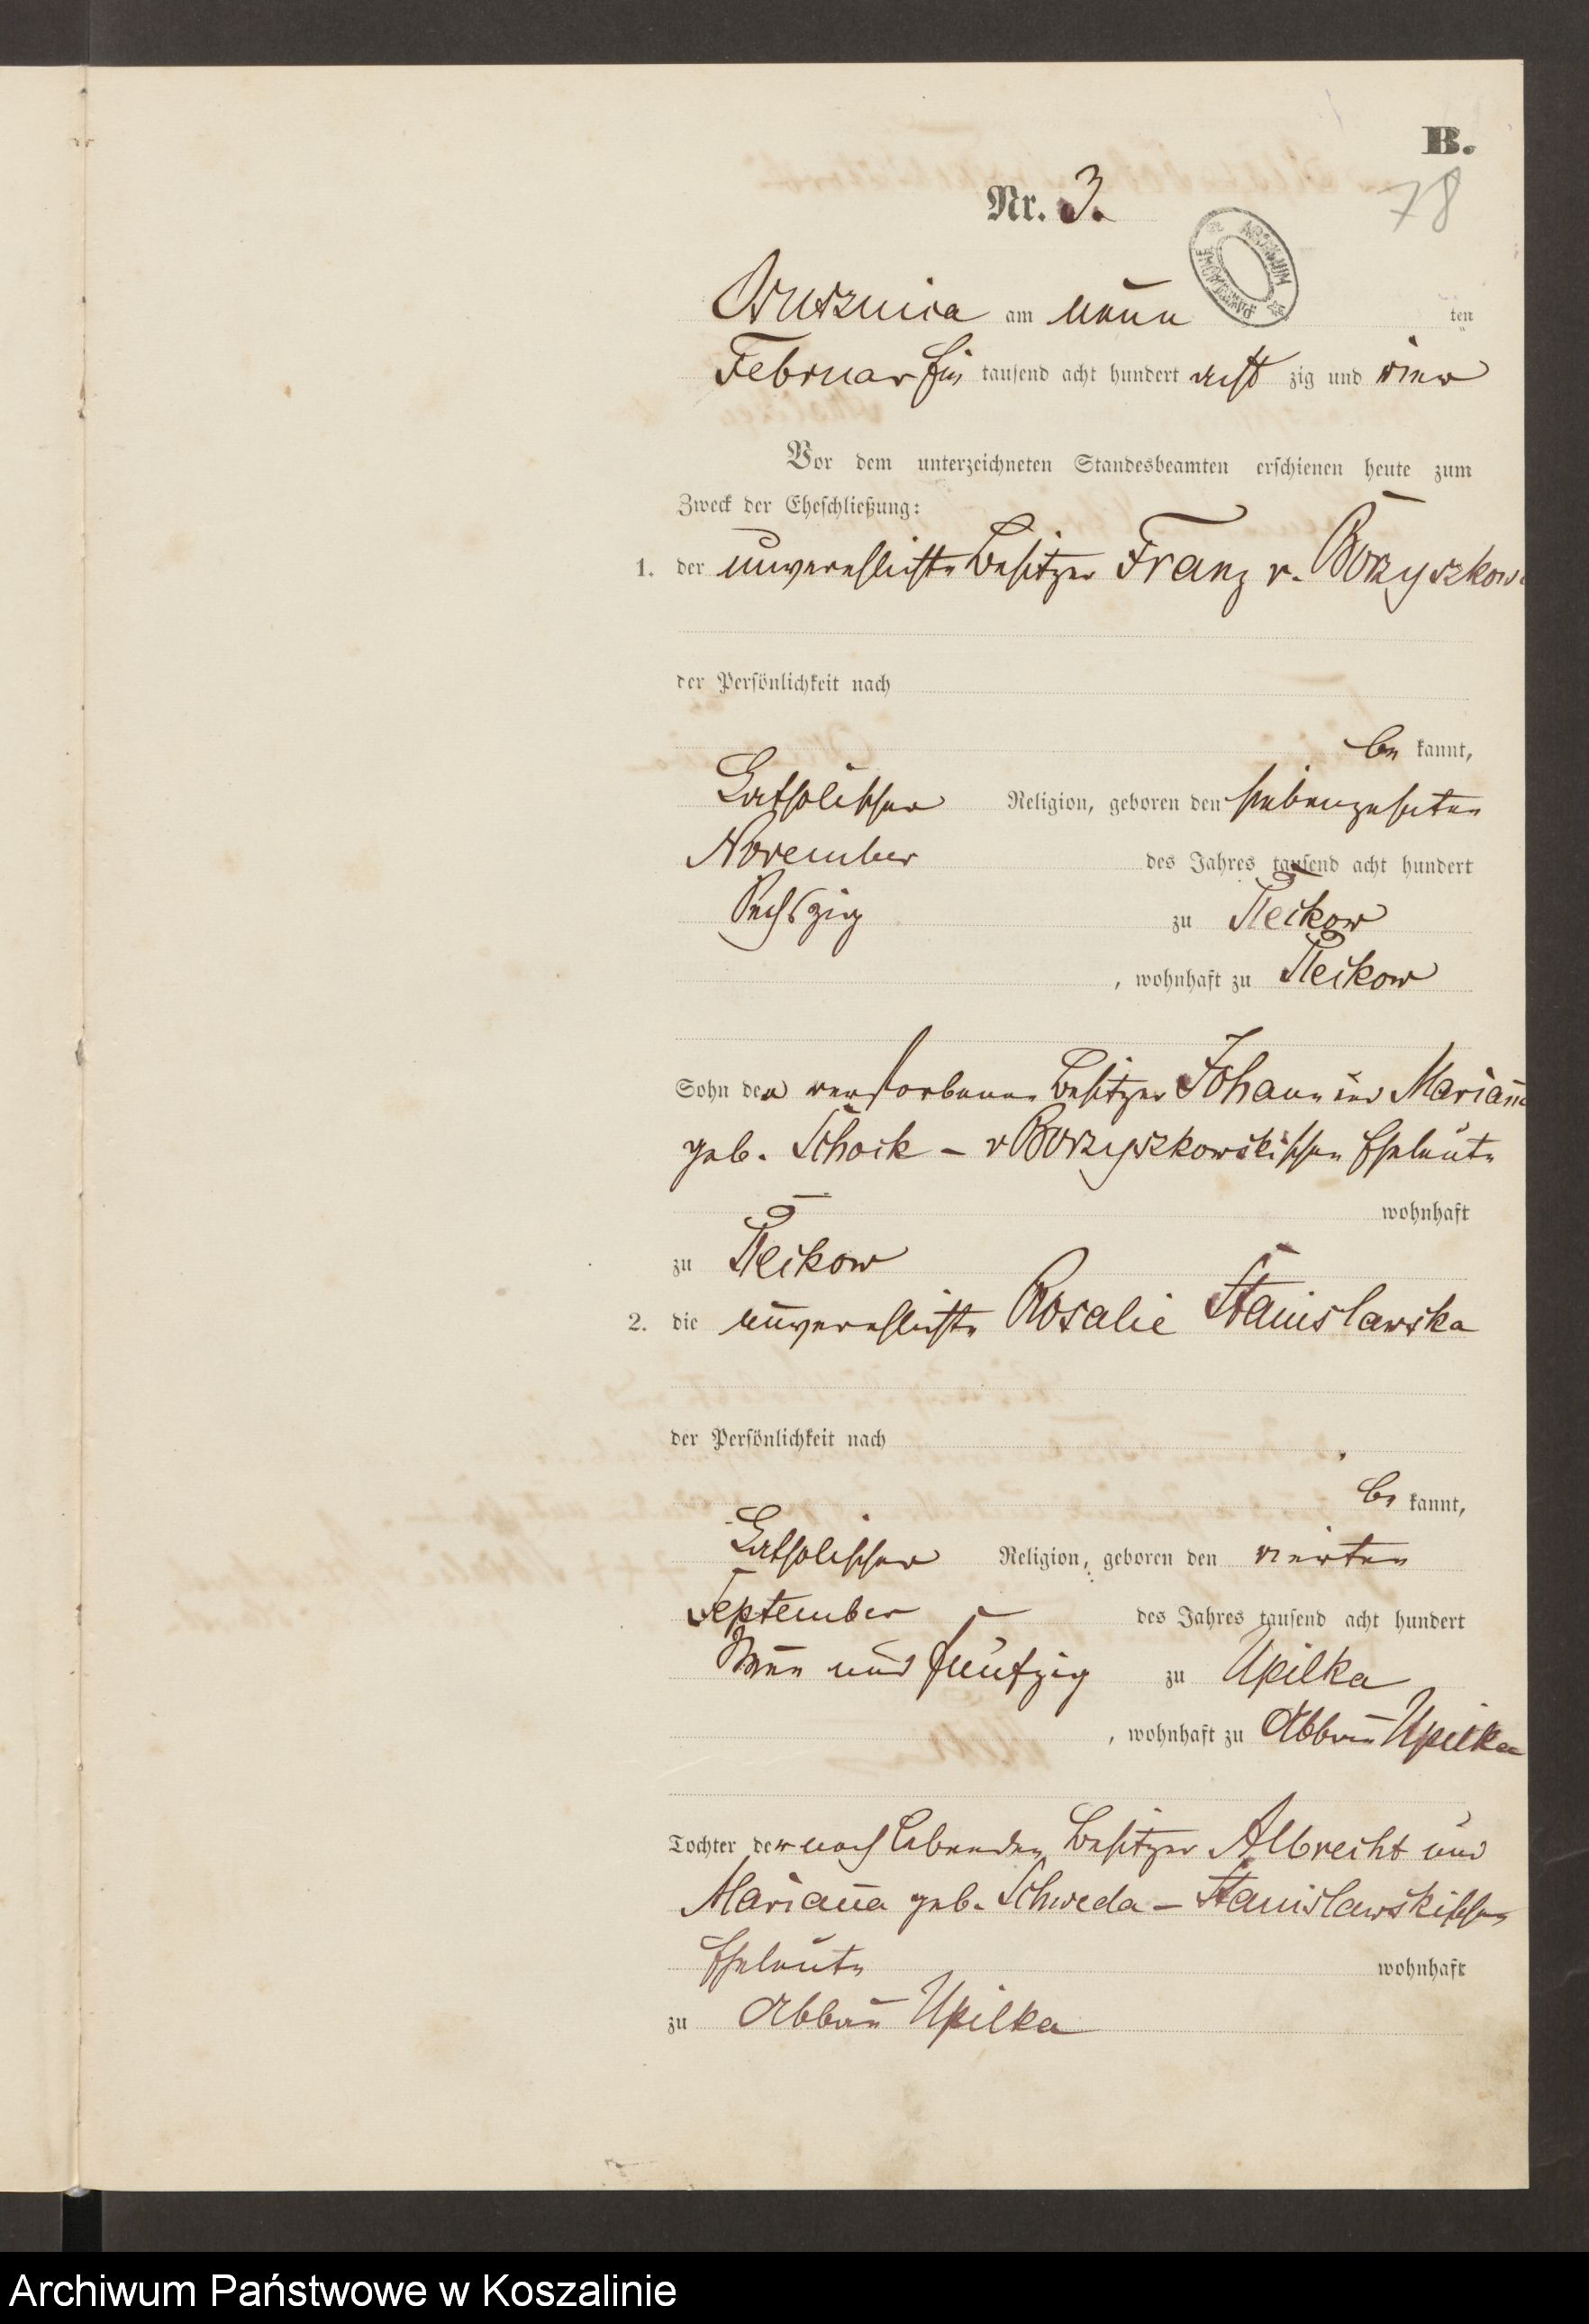 B.
78
Nr. 3.
ARCHIWUM PAŃSTWOWE
am neun ten
Februar Ein tausend acht hundert acht zig und vier
Vor dem unterzeichneten Standesbeamten erschienen heute zum
Zweck der Eheschließung:
1. der unverehlichte Besitzer Franz v. Borzyszkows
der Persönlichkeit nach
be kannt,
Catholischer Religion, geboren den siebenzehnten
November des Jahres tausend acht hundert
Sechszig zu
, wohnhaft zu
Sohn der verstorbenen Besitzer Johann und Marianna
geb. Schock - v Borzyszkowskischen Eheleute
wohnhaft
zu
2. die unverehlichte Rosalie Stanislawska
der Persönlichkeit nach
be kannt,
Catholischer Religion, geboren den vierten
September des Jahres tausend acht hundert
und fünfzig zu Upilka
, wohnhaft zu Abbau Upilka
Tochter der noch lebenden Besitzer Albrecht und
Marianna geb. Schweda - Stanislawskischen
Eheleute wohnhaft
zu Abbau Upilka
Archiwum Państwowe w Koszalinie